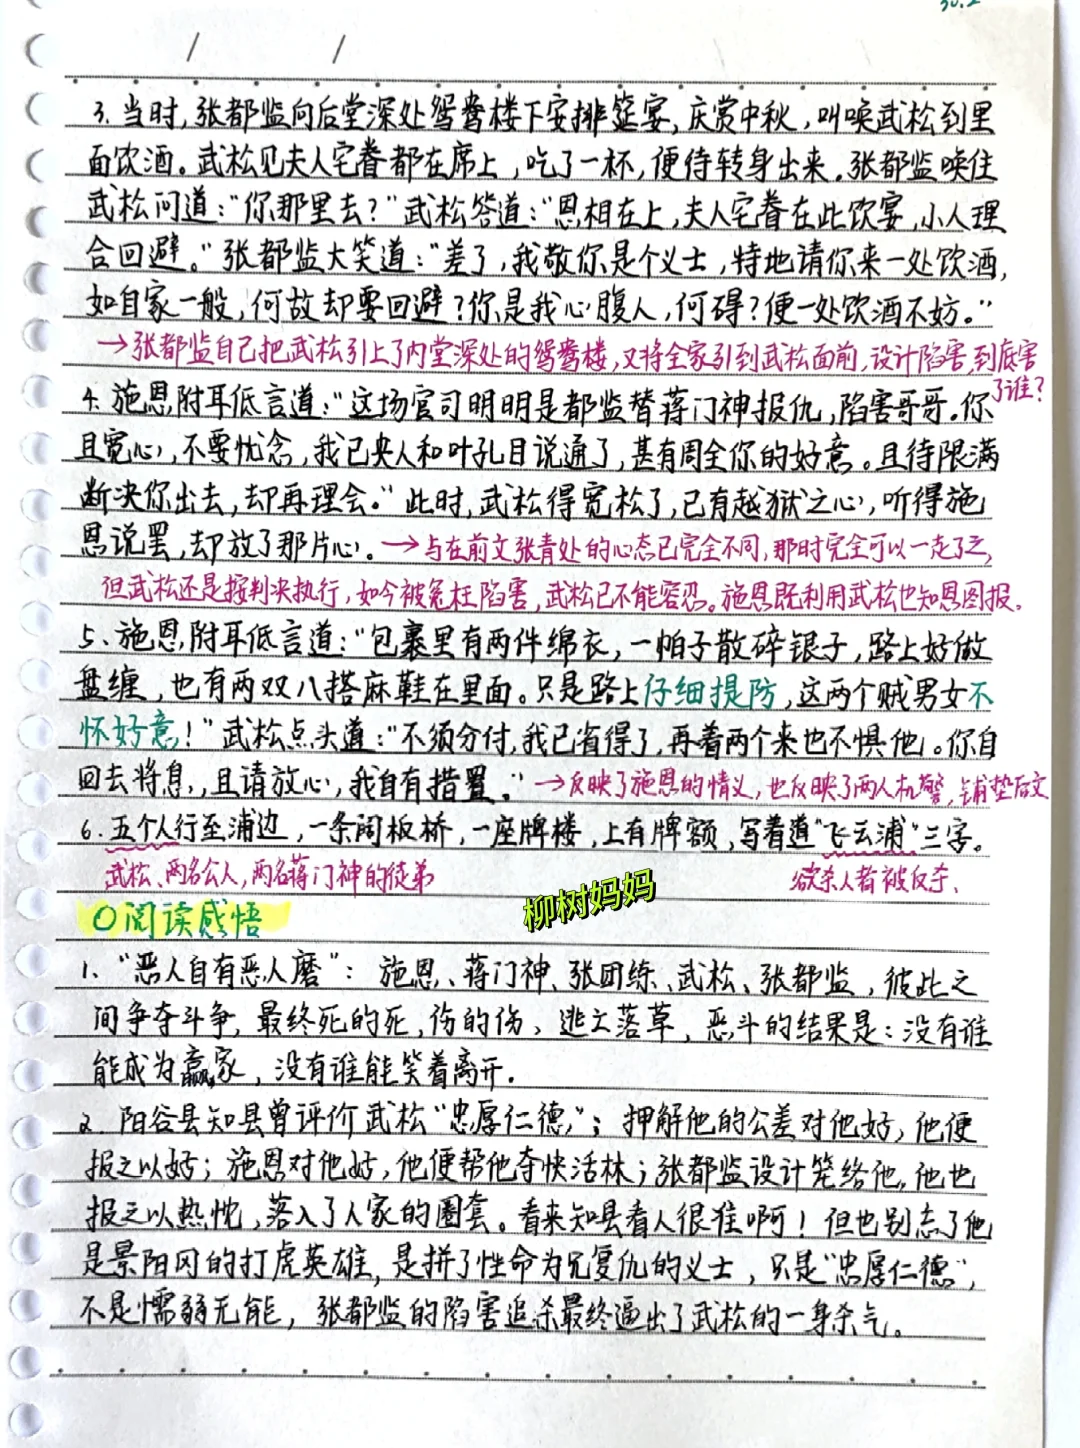 3. 当时,张都监向后堂深处鸳鸯楼下安排筵宴,庆赏中秋,叫唤武松到里
面饮酒。武松见夫人宅眷都在席上,吃了一杯,便待转身出来。张都监唤住
武松问道:“你那里去?”武松答道:“恩相在上,夫人宅眷在此饮宴,小人理
合回避。”张都监大笑道:“差了,我敬你是个义士,特地请你来一处饮酒,
如自家一般,何故却要回避?你是我心腹人,何碍?便一处饮酒不妨。”
→张都监自己把武松引上了内堂深处的鸳鸯楼,又将全家引到武松面前,设计陷害,到底害
了谁?
4. 施恩附耳低言道:“这场官司明明是都监替蒋门神报仇,陷害哥哥。你
且宽心,不要忧念,我已央人和叶孔目说通了,甚有周全你的好意。且待限满
断决你出去,却再理会。”此时,武松得宽松了,已有越狱之心,听得施
恩说罢,却放了那片心。→与在前文张青处的心态已完全不同,那时完全可以一走了之,
但武松还是按判决执行,如今被冤枉陷害,武松已不能容忍。施恩既利用武松也知恩图报。
5. 施恩附耳低言道:“包裹里有两件绵衣,一帕子散碎银子,路上好做
盘缠,也有两双八搭麻鞋在里面。只是路上仔细提防,这两个贼男女不
怀好意!”武松点头道:“不须分付,我已省得了,再着两个来也不惧他。你自
回去将息,且请放心,我自有措置。”→反映了施恩的情义,也反映了两人机警,铺垫后文
6. 五个人行至浦边,一条阔板桥,一座牌楼,上有牌额,写着道“飞云浦”三字。
武松、两名公人,两名蒋门神的徒弟
欲杀人者被反杀、
柳树妈妈
○阅读感悟
1、“恶人自有恶人磨”:施恩、蒋门神、张团练、武松、张都监,彼此之
间争夺斗争,最终死的死,伤的伤、逃亡落草,恶斗的结果是:没有谁
能成为赢家,没有谁能笑着离开.
2. 阳谷县知县曾评价武松“忠厚仁德”;押解他的公差对他好,他便
报之以好;施恩对他好,他便帮他夺快活林;张都监设计笼络他,他也
报之以热忱,落入了人家的圈套。看来知县看人很准啊!但也别忘了他
是景阳冈的打虎英雄,是拼了性命为兄复仇的义士,只是“忠厚仁德”,
不是懦弱无能,张都监的陷害追杀最终逼出了武松的一身杀气。